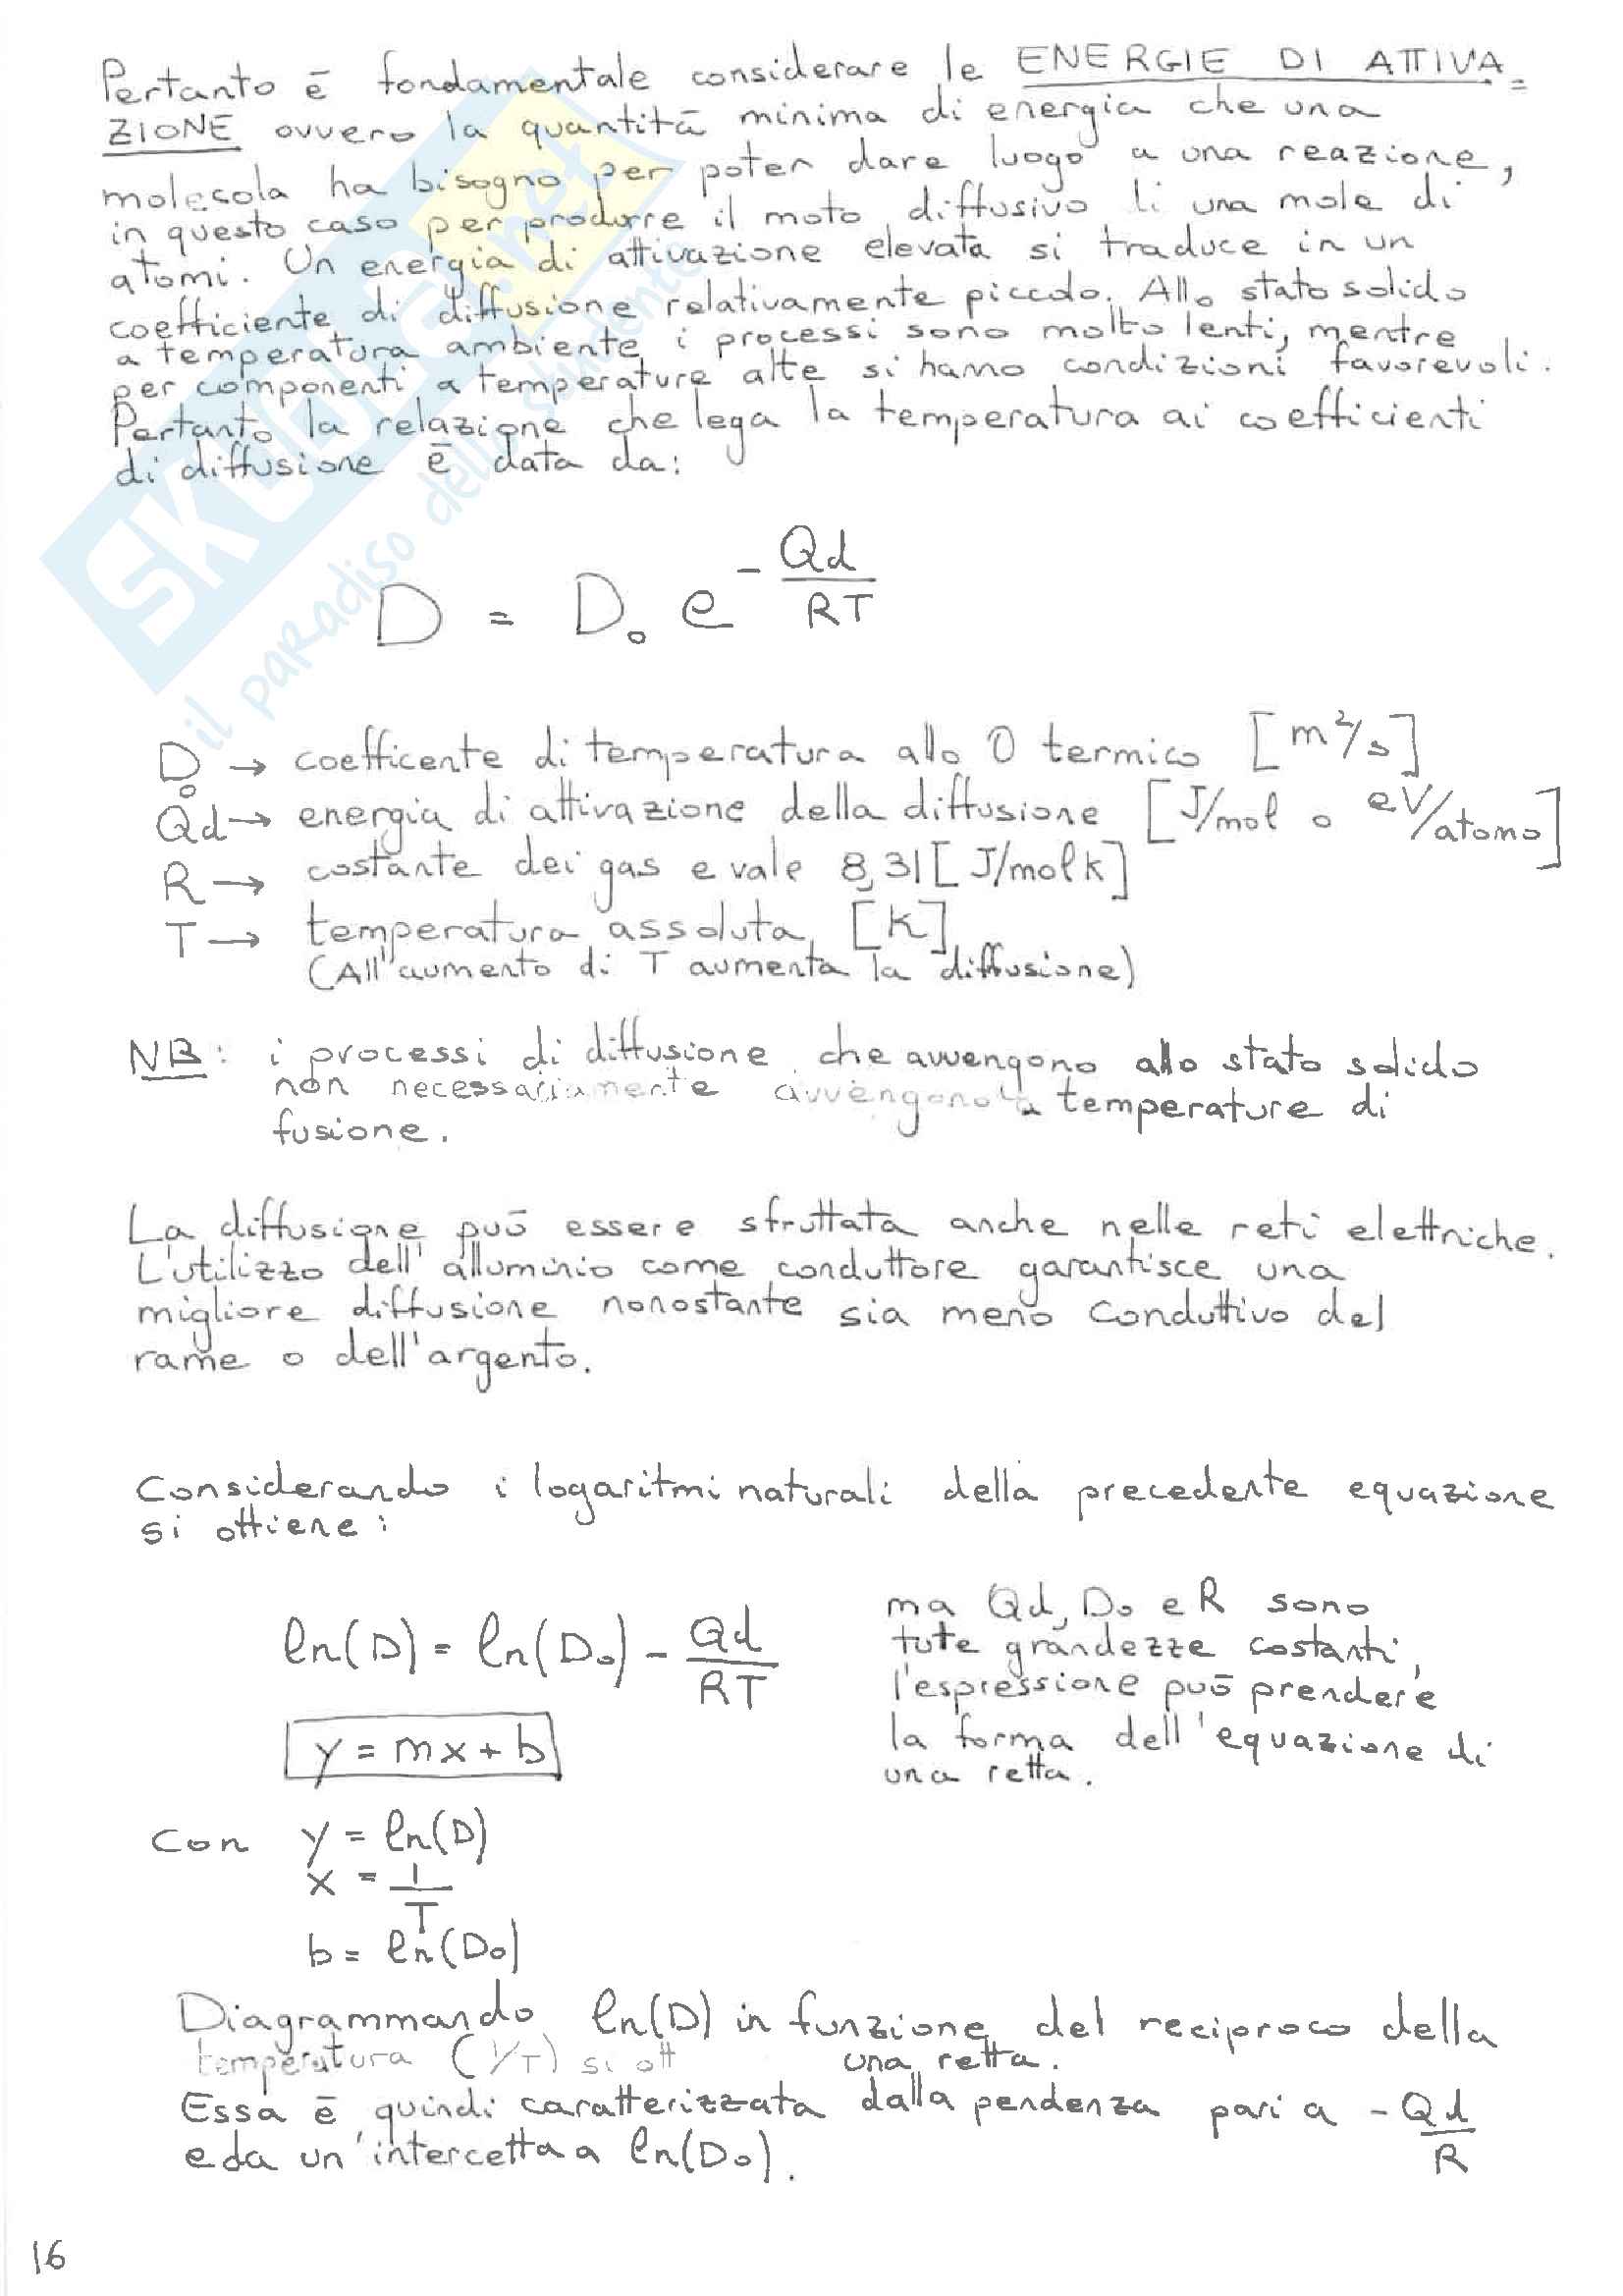 Pertanto ē fondamentale considerare le ENERGIE DI ATTIVA-
ZIONE ovvero la quantitā minima di energia che una
molecola ha bisogno per poter dare luogo a una reazione,
in questo caso per produrre il moto diffusivo di una mole di
atomi. Un energia di attivazione elevata si traduce in un
coefficiente di diffusione relativamente piccolo. Allo stato solido
a temperatura ambiente i processi sono molto lenti, mentre
per componenti a temperature alte si hanno condizioni favorevoli.
Pertanto la relazione che lega la temperatura ai coefficienti
di diffusione ē data da:
SKUOLA.net
il paradiso dello studente
D = D₀ e^(-Qd/RT)
D₀ → coefficente di temperatura allo 0 termico [m²/s]
Qd → energia di attivazione della diffusione [J/mol o eV/atomo]
R → costante dei gas e vale 8,31 [J/mol k]
T → temperatura assoluta [K]
(All'aumento di T aumenta la diffusione)
NB: i processi di diffusione che avvengono allo stato solido
non necessariamente avvengono a temperature di
fusione.
La diffusione puō essere sfruttata anche nelle reti elettriche.
L'utilizzo dell'alluminio come conduttore garantisce una
migliore diffusione nonostante sia meno conduttivo del
rame o dell'argento.
Considerando i logaritmi naturali della precedente equazione
si ottiene:
ln(D) = ln(D₀) - Qd/RT
y = mx + b
ma Qd, D₀ e R sono
tute grandezze costanti,
l'espressione puō prendere
la forma dell'equazione di
una retta.
Con y = ln(D)
x = 1/T
b = ln(D₀)
Diagrammando ln(D) in funzione del reciproco della
temperatura (1/T) si ott una retta.
Essa ē quindi caratterizzata dalla pendenza pari a -Qd/R
e da un'intercetta a ln(D₀).
16